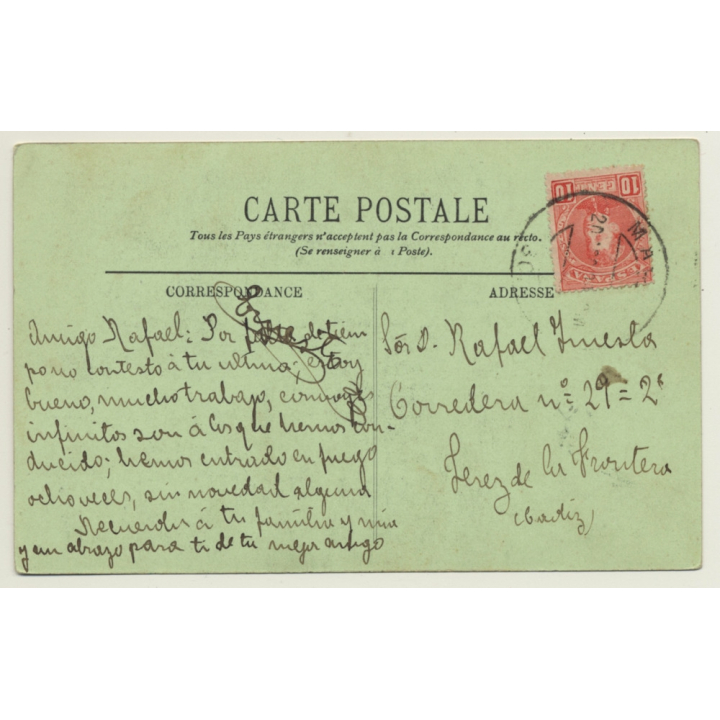 CARTE POSTALE
Tous les Pays étrangers n'acceptent pas la Correspondance au recto.
(Se renseigner à 1 Poste).
CORRESPONDANCE
ADRESSE
10 CENT 10
20
Amigo Rafael: Por falta de tiem
po no contesto á tu ultima; estoy
bueno, mucho trabajo, convoyes
infinitos son á los que hemos con-
ducido; hemos entrado en fuego
ocho veces, sin novedad alguna
Recuerdos á tu familia y mia
y un abrazo para ti de tu mejor amigo
Sór. D. Rafael
Corredera nº 29 = 2º
Jerez de la Frontera
(Cadiz)